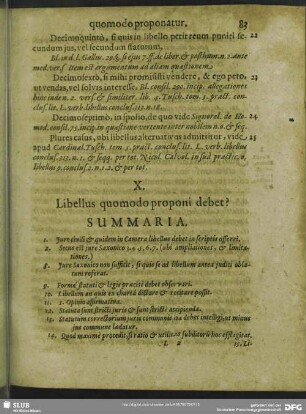 quomodo proponatur. 83
Decimoquintò, si quis in libello petit reum puniri se- 22
cundum jus, vel secundum statutum,
Bl. in d. l. Gallus. 29. §. & quid
med. vers. Item est argumentum ad aliam quæstionem.
Decimosextò, si mihi promisisti vendere, & ego peto, 23
ut vendas, vel solvas interesse. Bl. consil. 200. incip. allegationes
hinc inde n. 2. vers. & similiter. lib. 4. Tusch. tom. 5. pract. conclus.
lit. L. verb. libellus conclus.
Decimoseptimò, in spolio, de quo vide
med. consil. 73. incip. in quæstione vertente inter nobilem n.11. & seqq.
Plures casus, ubi libellus alternativus admittitur, vide,
apud Cardinal. Tusch. tom. 5. pract. conclus. lit. L. verb. libellus
conclus. 215. n. 1. & seqq. per tot. Nicol. Calvol. in sua practic. §.
libellus 9. conclus. 2. n. 1. 2. & per tot.
X.
Libellus quomodo proponi debet?
SUMMARIA.
1. Jure civili & quidem in Camera libellus debet in scriptis offerri.
2. Secus est jure Saxonico 3. 4. 5. 6. 7. (ubi ampliationes, & limita-
tiones.)
8. Jure Saxonico non sufficit, si quis se ad libellum antea judici obla-
tum referat.
9. Forma statuti & legis præcisè debet observari.
10. Libellum an quis ex charta dictare & recitare possit.
11. Opinio affirmativa.
12. Statuta sunt stricti juris & sunt strictè accipienda.
13. Statutum correctorium juris communis ita debet intelligi, ut minus
jus commune lædatur.
14. Quod maximè procedit, si ratio & utilitas subditorum hoc efflagitat.
L 2 15. Li-